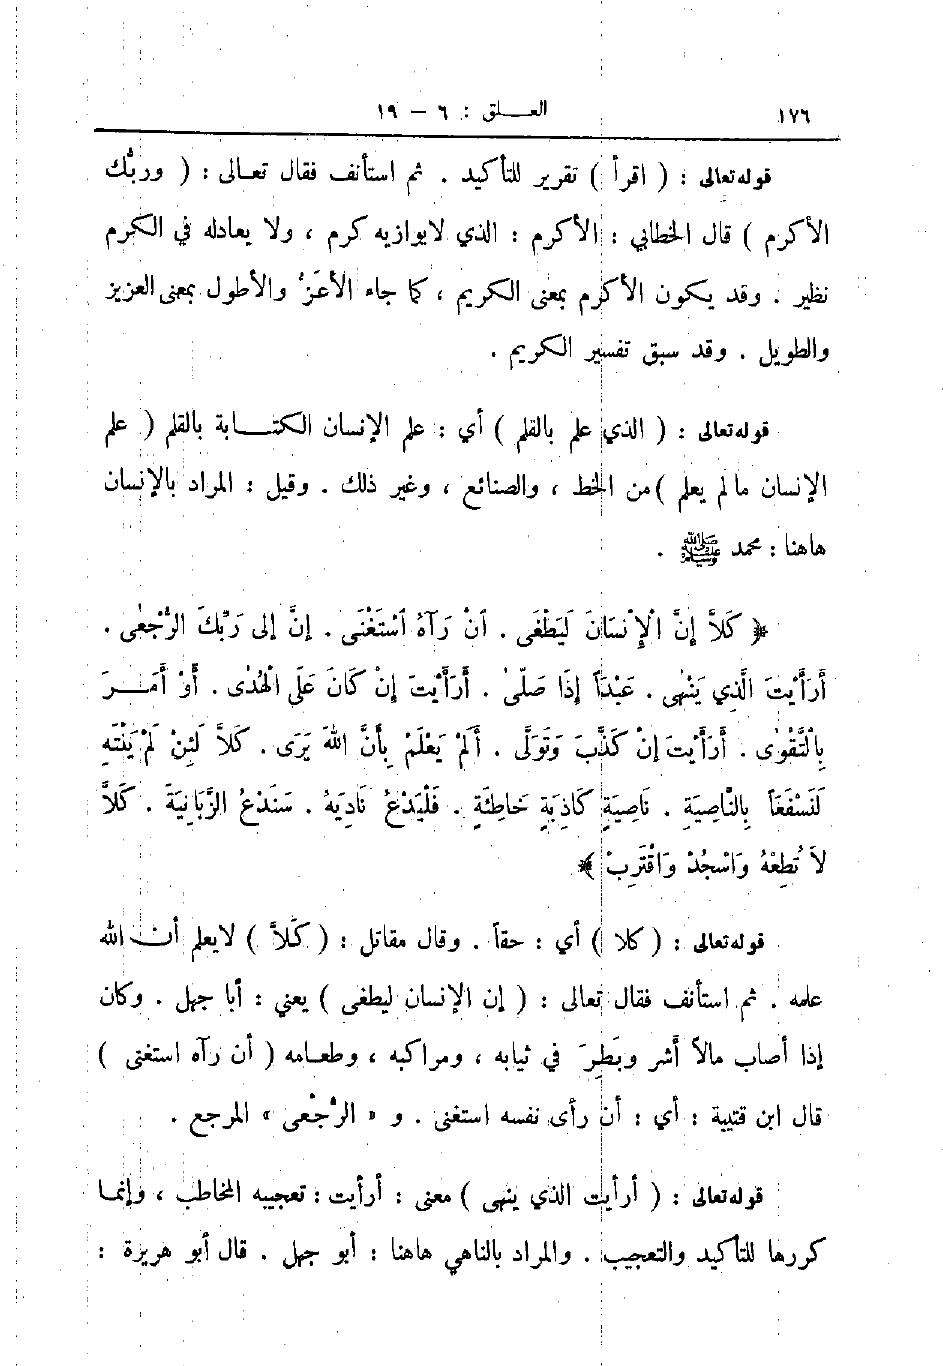 ١٧٦ العـــلق : ٦ – ١٩
قوله تعالى : ( اقرأ ) تقرير للتأكيد . ثم استأنف فقال تعـالى : ( وربُّك
الأكرم ) قال الخطابي : الأكرم : الذي لايوازيه كرم ، ولا يعادله في الكرم
نظير . وقد يكون الأكرم بمعنى الكريم ، كما جاء الأعَزُّ والأطول بمعنى العزيز
والطويل . وقد سبق تفسير الكريم .
قوله تعالى : ( الذي علم بالقلم ) أي : علم الإنسان الكتـــابة بالقلم ( علم
الإنسان مالم يعلم ) من الخط ، والصنائع ، وغير ذلك . وقيل : المراد بالإنسان
هاهنا : محمد ﷺ .
﴿ كَلاَّ إِنَّ الْإِنْسَانَ لَيَطْغَى . أَنْ رَآهُ اسْتَغْنَى . إِنَّ إِلى رَبِّكَ الرُّجْعٰى .
أَرَأَيْتَ الَّذِي يَنْهٰى . عَبْدَاً إِذَا صَلّىٰ . أَرَأَيْتَ إِنْ كَانَ عَلَى الْهُدٰى . أَوْ أَمَـــرَ
بِالْتَّقْوٰى . أَرَأَيْتَ إِنْ كَذَّبَ وَتَوَلَّى . أَلَمْ يَعْلَمْ بِأَنَّ اللهَ يَرَى . كَلاَّ لَئِنْ لَمْ يَنْتَهِ
لَنَسْفَعَاً بِالنَّاصِيَةِ . نَاصِيَةٍ كَاذِبَةٍ خَاطِئَةٍ . فَلْيَدْعُ نَادِيَهُ . سَنَدْعُ الزَّبَانِيَةَ . كَلاَّ
لاَ تُطِعْهُ وَاسْجُدْ وَاقْتَرِبْ ﴾
قوله تعالى : ( كلا ) أي : حقاً . وقال مقاتل : ( كَلاَّ ) لايعلم أن الله
علمه . ثم استأنف فقال تعالى : ( إن الإنسان ليطغى ) يعني : أبا جهل . وكان
إذا أصاب مالاً أَشر وبَطِرَ في ثيابه ، ومراكبه ، وطعـامه ( أن رآه استغنى )
قال ابن قتيبة : أي : أن رأى نفسه استغنى . و « الرُّجْعى » المرجع .
قوله تعالى : ( أرأيت الذي ينهى ) معنى : أرأيت : تعجيبه المخاطب ، وإنما
كررها للتأكيد والتعجيب . والمراد بالناهي هاهنا : أبو جهل . قال أبو هريرة :